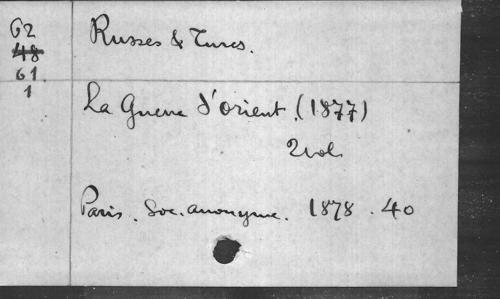 62
48
61.
1
Russes & Turcs.
La Guerre d'orient. (1877)
2 vol.
Paris. Soc. anonyme. 1878. 40